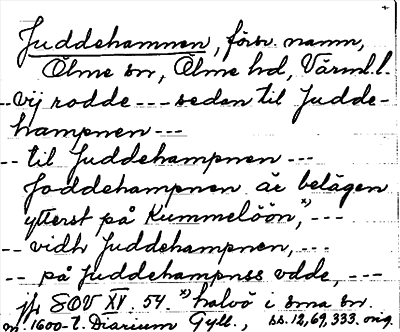 Juddehamnen, försv. namn,
Ölme sn, Ölme hd, Värml. l.
-- vij rodde --- sedan til Judde-
hampnen ---
-- til Juddehampnen ---
Joddehampnen är belägen
ytterst på Kummelöön,ˣ⁾ ---
-- vidh Juddehampnen, ---
-- på Juddehampnss vdde, ---
jfr SOV XV. 54. ˣ⁾ halvö i sma sn.
m. 1600-t. Diarium Gyll., ss. 12, 69, 333. orig.